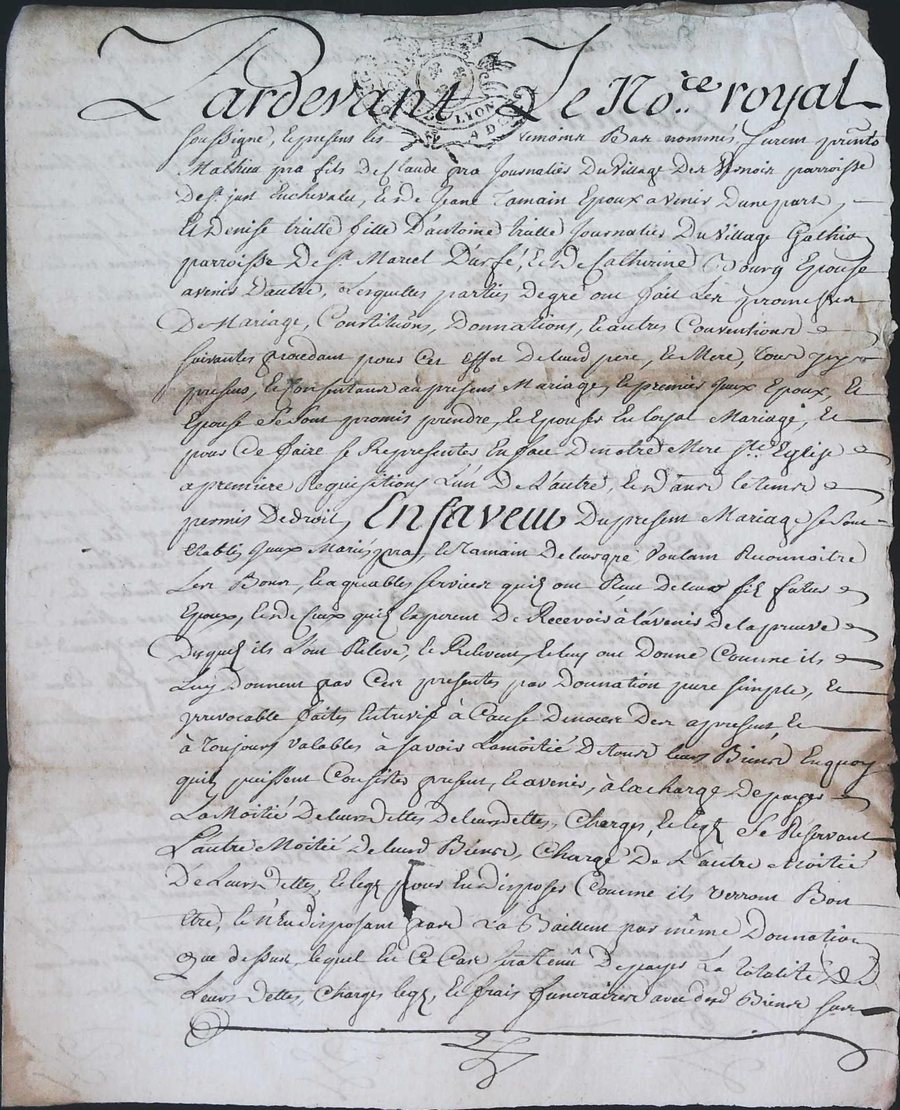 Pardevant Le No.re royal
LYON
soussigné, et presens les temoins Bas nommés, furent pnts
Mathieu pra fils de Claude pra Journalier Du Village Des parroisse
De st. just Enchevalet, et De Jeane Tamain Epoux avenir Dune part,
Et Denise trulle fille D'antoine trulle Journalier Du Village
parroisse De st. Marcel D'urfé, et De Catherine Bourg Epouse
avenir Dautre, Lesquelles parties De gré ont fait Les promesses
De Mariage, Constitutions, Donnations, et autres Conventions
suivantes procedant pour Cet Effet De leurd pere, et Mere, Tous
presens, et Consentans au present Mariage, et premier Epoux, Et
Epouse se sont promis prendre, et Epouser En loyal Mariage, Et
pour Ce faire se Representer En face De notre Mere ste. Eglise
a premiere Requisition L'un De L'autre, et Dans le tems
permis De droit, En faveur Du present Mariage se sont
Etablis Mariés pra, et Tamain De leur gré Voulant Reconnoitre
Les Bons, et agreables services quils ont Recu De leur fils futur
Epoux, et De Ceux quils Esperent De Recevoir à L'avenir De la preuve
Desquels ils L'ont Relevé, et Relevent, et luy ont Donné Comme ils
Luy Donnent par Ces presentes par Donnation pure simple, Et
irrevocable faite Entrevifs à Cause De noces Des apresent Et
à Toujours Valables à savoir La moitié De tous leurs Biens En quoy
quils puissent Consister present, et avenir, à la charge De payer
La Moitié De leurs dettes De leurs dettes, Charges, et legs Se Reservant
L'autre Moitié De leurd Biens, Charge De L'autre Moitié
De Leurs Dettes, et legs pour En Disposer Comme ils Verront Bon
etre, et n'En disposant pas La Baillent par même Donnation
que dessus, lequel En Ce Cas sera tenu De payer La totalité De
Leurs Dettes, Charges legs, et frais funeraires avec Biens